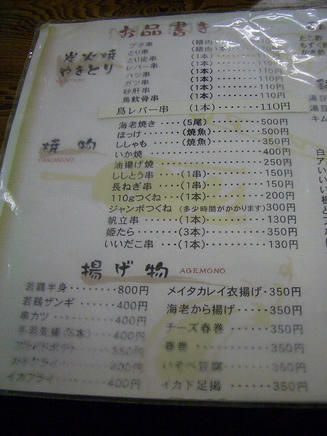 お品書き
炭火焼
やきとり
ブタ串 (精肉)
とり串 (精肉)(1本)
とり皮串 (1本) 110円
レバー串 (1本) 110円
ハツ串 (1本) 110円
ガツ串 (1本) 110円
砂肝串 (1本) 110円
鳥軟骨串 (1本) 110円
鳥レバー串 (1本) 110円
焼物
YAKIMONO
海老焼き (5尾) 500円
ほっけ (焼魚) 500円
ししゃも (焼魚) 350円
いか焼 400円
油揚げ焼 250円
ししとう串 (1串) 150円
長ねぎ串 (1串) 150円
110gつくね (1本) 200円
ジャンボつくね (多少時間がかかります) 300円
帆立串 (1本) 130円
姫たら (3本) 350円
いいだこ串 (1本) 130円
揚げ物
AGEMONO
若鶏半身 800円
若鶏ザンギ 400円
串カツ 400円
手羽先揚(5本) 400円
フライドポテト 350円
400円
イカフライ 400円
メイタカレイ衣揚げ 350円
海老から揚げ 350円
チーズ春巻 350円
春巻 350円
いそべ豆腐 350円
イカ下足揚 350円